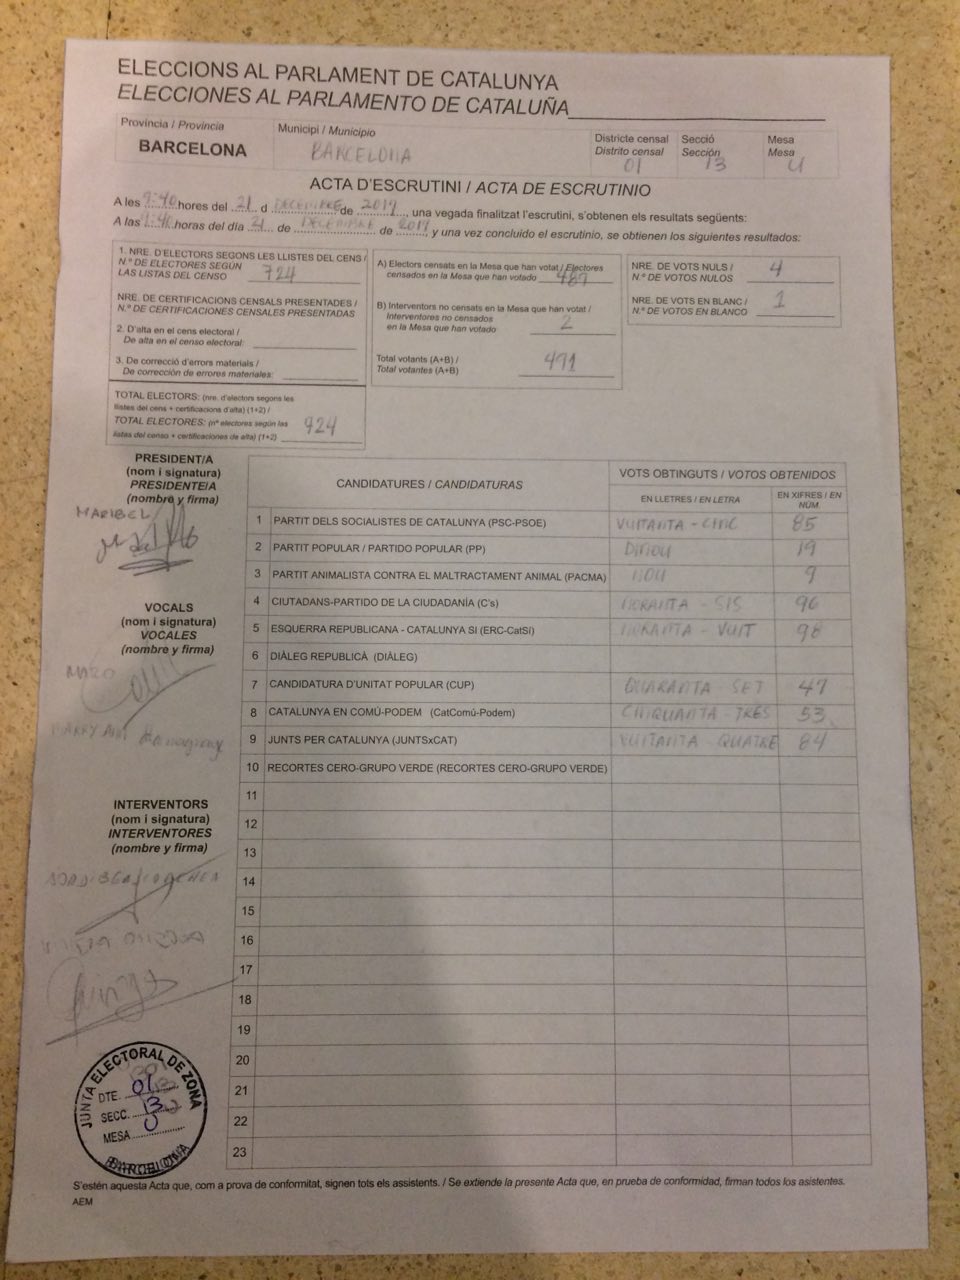 ELECCIONS AL PARLAMENT DE CATALUNYA
ELECCIONES AL PARLAMENTO DE CATALUÑA
Província / Provincia
BARCELONA
Municipi / Municipio
BARCELONA
Districte censal
Distrito censal
01
Secció
Sección
13
Mesa
Mesa
U
ACTA D'ESCRUTINI / ACTA DE ESCRUTINIO
A les 9:40 hores del 21 d DECEMBRE de 2017, una vegada finalitzat l'escrutini, s'obtenen els resultats següents:
A las 9:40 horas del día 21 de DECEMBRE de 2017, y una vez concluido el escrutinio, se obtienen los siguientes resultados:
1. NRE. D'ELECTORS SEGONS LES LLISTES DEL CENS /
N.º DE ELECTORES SEGÚN
LAS LISTAS DEL CENSO
724
NRE. DE CERTIFICACIONS CENSALS PRESENTADES /
N.º DE CERTIFICACIONES CENSALES PRESENTADAS
2. D'alta en el cens electoral /
De alta en el censo electoral:
3. De correcció d'errors materials /
De corrección de errores materiales:
TOTAL ELECTORS: (nre. d'electors segons les
llistes del cens + certificacions d'alta) (1+2) /
TOTAL ELECTORES: (nº electores según las
listas del censo + certificaciones de alta) (1+2)
924
A) Electors censats en la Mesa que han votat / Electores
censados en la Mesa que han votado
B) Interventors no censats en la Mesa que han votat /
Interventores no censados
en la Mesa que han votado
2
Total votants (A+B) /
Total votantes (A+B)
491
NRE. DE VOTS NULS /
N.º DE VOTOS NULOS
4
NRE. DE VOTS EN BLANC /
N.º DE VOTOS EN BLANCO
1
PRESIDENT/A
(nom i signatura)
PRESIDENTE/A
(nombre y firma)
MARIBEL
VOCALS
(nom i signatura)
VOCALES
(nombre y firma)
INTERVENTORS
(nom i signatura)
INTERVENTORES
(nombre y firma)
CANDIDATURES / CANDIDATURAS
VOTS OBTINGUTS / VOTOS OBTENIDOS
EN LLETRES / EN LETRA
EN XIFRES / EN NÚM.
1 PARTIT DELS SOCIALISTES DE CATALUNYA (PSC-PSOE) VUITANTA - CINC 85
2 PARTIT POPULAR / PARTIDO POPULAR (PP) DINOU 19
3 PARTIT ANIMALISTA CONTRA EL MALTRACTAMENT ANIMAL (PACMA) NOU 9
4 CIUTADANS-PARTIDO DE LA CIUDADANÍA (C's) NORANTA - SIS 96
5 ESQUERRA REPUBLICANA - CATALUNYA SÍ (ERC-CatSí) NORANTA - VUIT 98
6 DIÀLEG REPUBLICÀ (DIÀLEG)
7 CANDIDATURA D'UNITAT POPULAR (CUP) QUARANTA - SET 47
8 CATALUNYA EN COMÚ-PODEM (CatComú-Podem) CINQUANTA - TRES 53
9 JUNTS PER CATALUNYA (JUNTSxCAT) VUITANTA QUATRE 84
10 RECORTES CERO-GRUPO VERDE (RECORTES CERO-GRUPO VERDE)
11
12
13
14
15
16
17
18
19
20
21
22
23
JUNTA ELECTORAL DE ZONA
DTE. 01
SECC. 13
MESA U
BARCELONA
S'estén aquesta Acta que, com a prova de conformitat, signen tots els assistents. / Se extiende la presente Acta que, en prueba de conformidad, firman todos los asistentes.
AEM